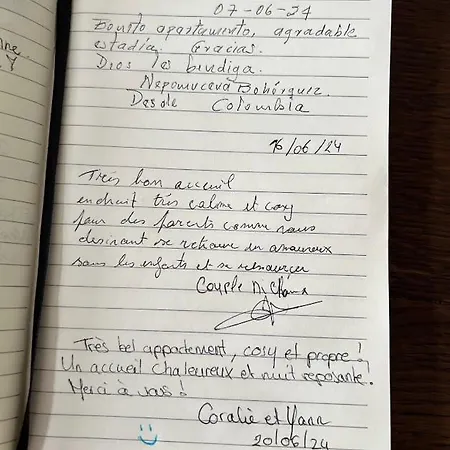 07-06-24
Bonito apartamento, agradable
estadía. Gracias.
Dios les bendiga.
Nepomuceva Bohórquez
Desde Colombia
16/06/24
Très bon acceuil
endruit très calme et cosy
pour des parents comme nous
desirant se retrouver en amoureux
sans les enfants et se ressourcer
Couple
Très bel appartement, cosy et propre !
Un accueil chaleureux et nuit reposante.
Merci à vous !
Coralie et Yann
20/06/24